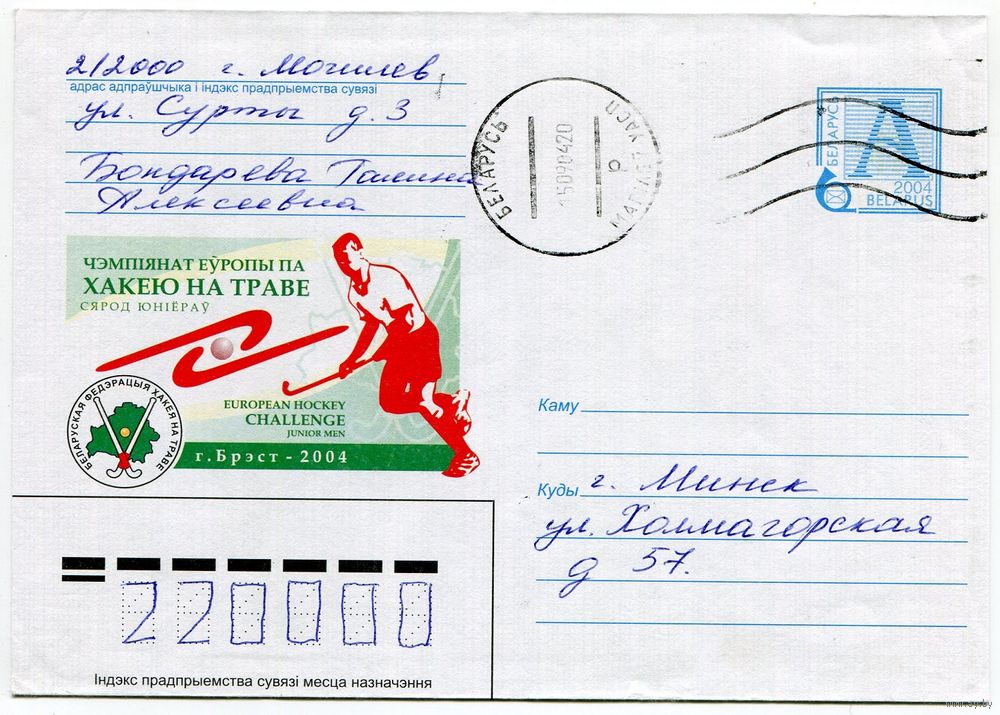 212000 г. Могилев
адрас адпраўшчыка і індэкс прадпрыемства сувязі
ул. Сурты д. 3
Бондарева Галина
Алексеевна
БЕЛАРУСЬ
15090420
МАГІЛЕЎ УАСП
БЕЛАРУСЬ
A
2004
BELARUS
ЧЭМПІЯНАТ ЕЎРОПЫ ПА
ХАКЕЮ НА ТРАВЕ
СЯРОД ЮНІЁРАЎ
EUROPEAN HOCKEY
CHALLENGE
JUNIOR MEN
г. Брэст - 2004
БЕЛАРУСКАЯ ФЕДЭРАЦЫЯ ХАКЕЯ НА ТРАВЕ
Каму
Куды г. Минск
ул. Холмагорская
д 57.
220000
Індэкс прадпрыемства сувязі месца назначэння